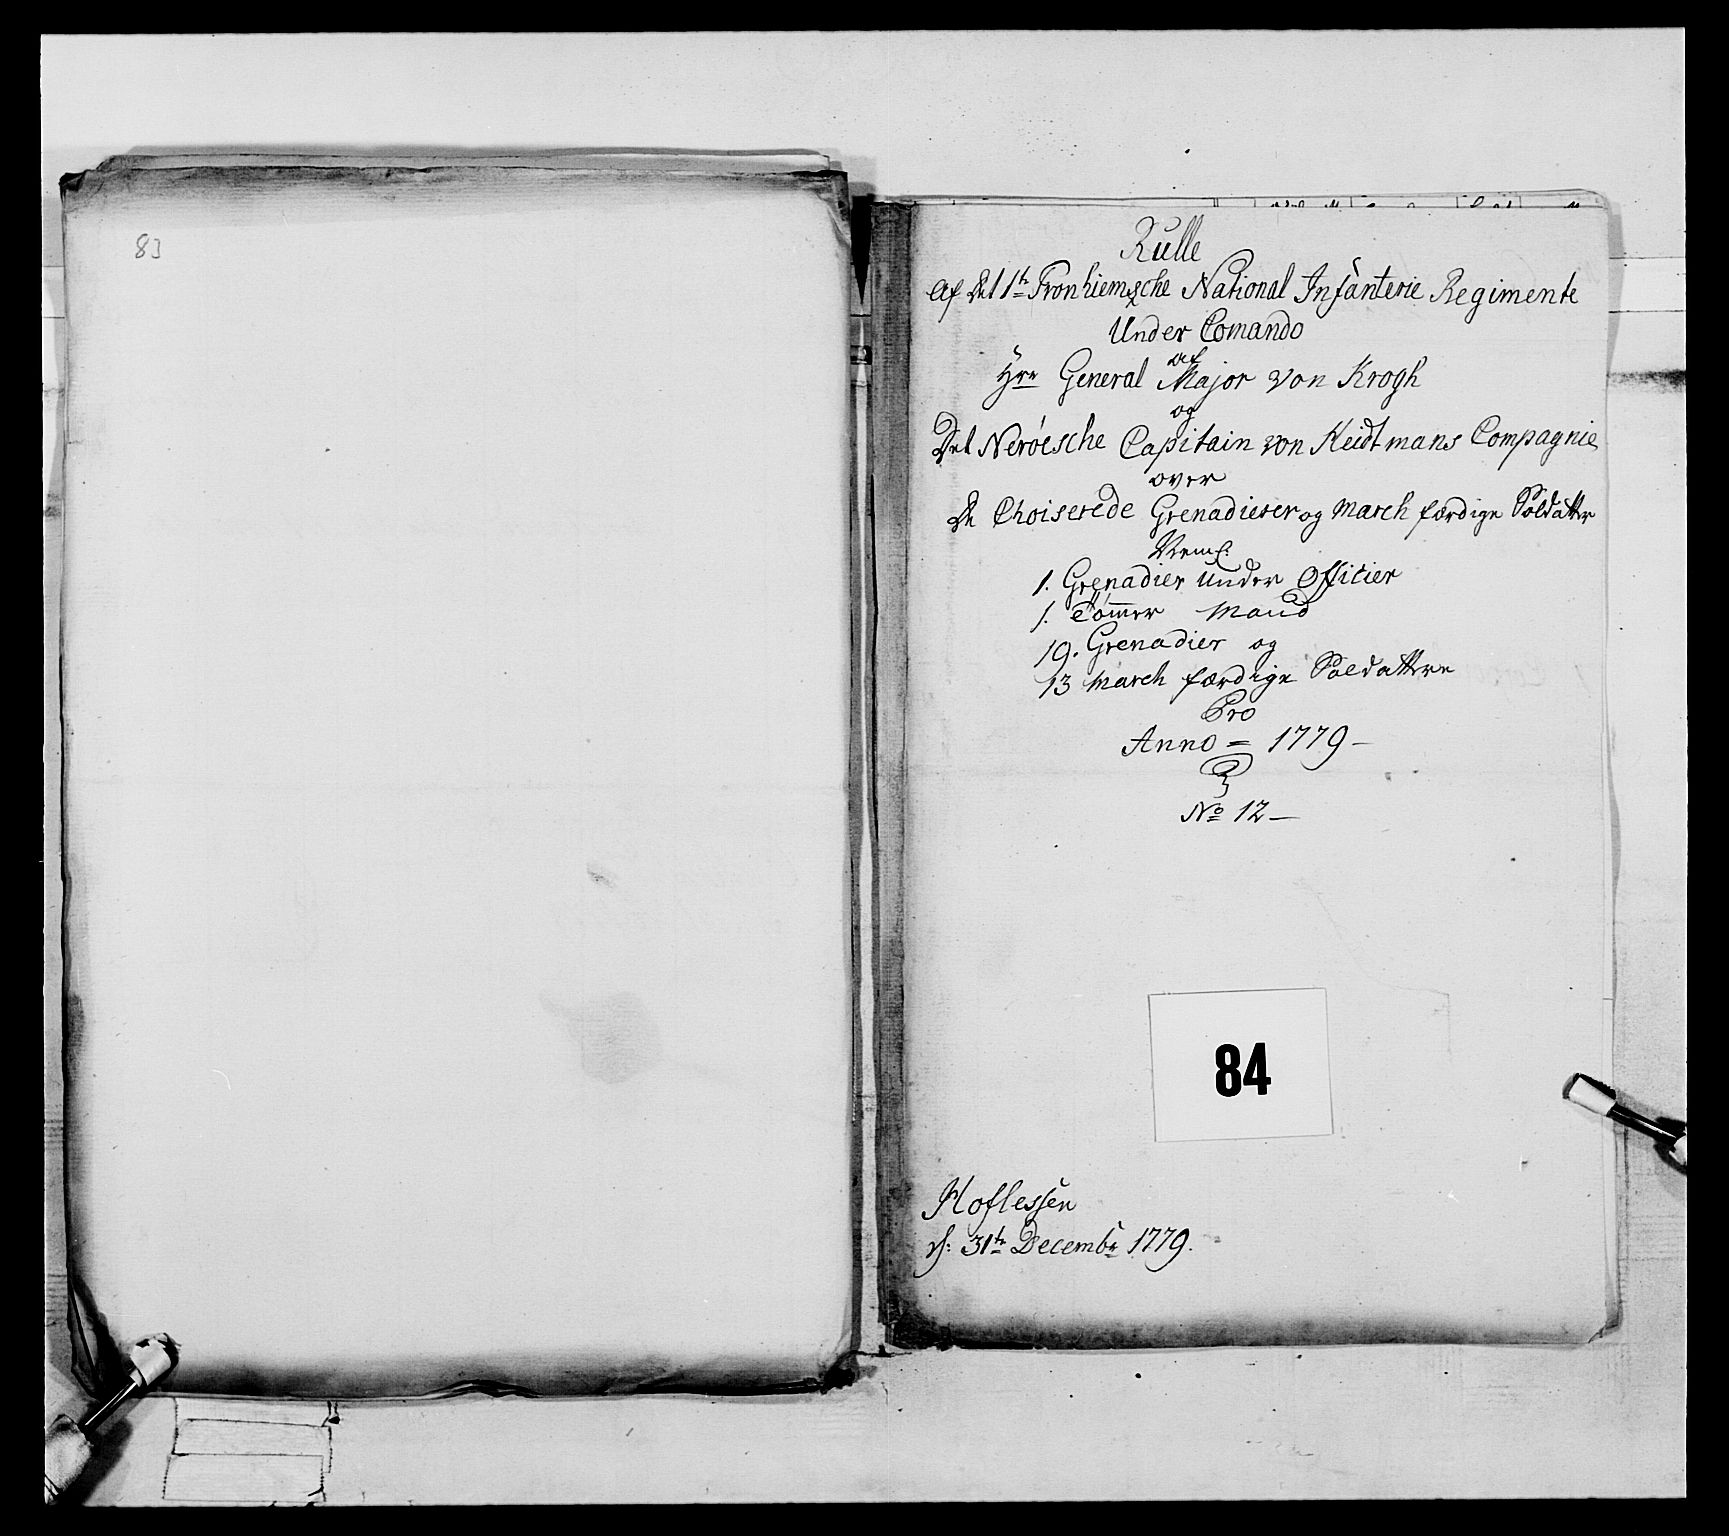 83
Rulle
Af det 1te Tronhiemsche National Infanterie Regimente
Under Comando
af
Hrr General Major von Krogh
og
Det Neröesche Capitain von Heidtmans Compagnie
over
De Choiserede Grenadierer og March færdige Soldatter
Neml:
1. Grenadier Under Officier
1. Tömmer Mand
19. Grenadier og
13 March færdige Soldattere
Pro
Anno = 1779 –
No 12 –
84
Hoflessen
d: 31te Decembr 1779.